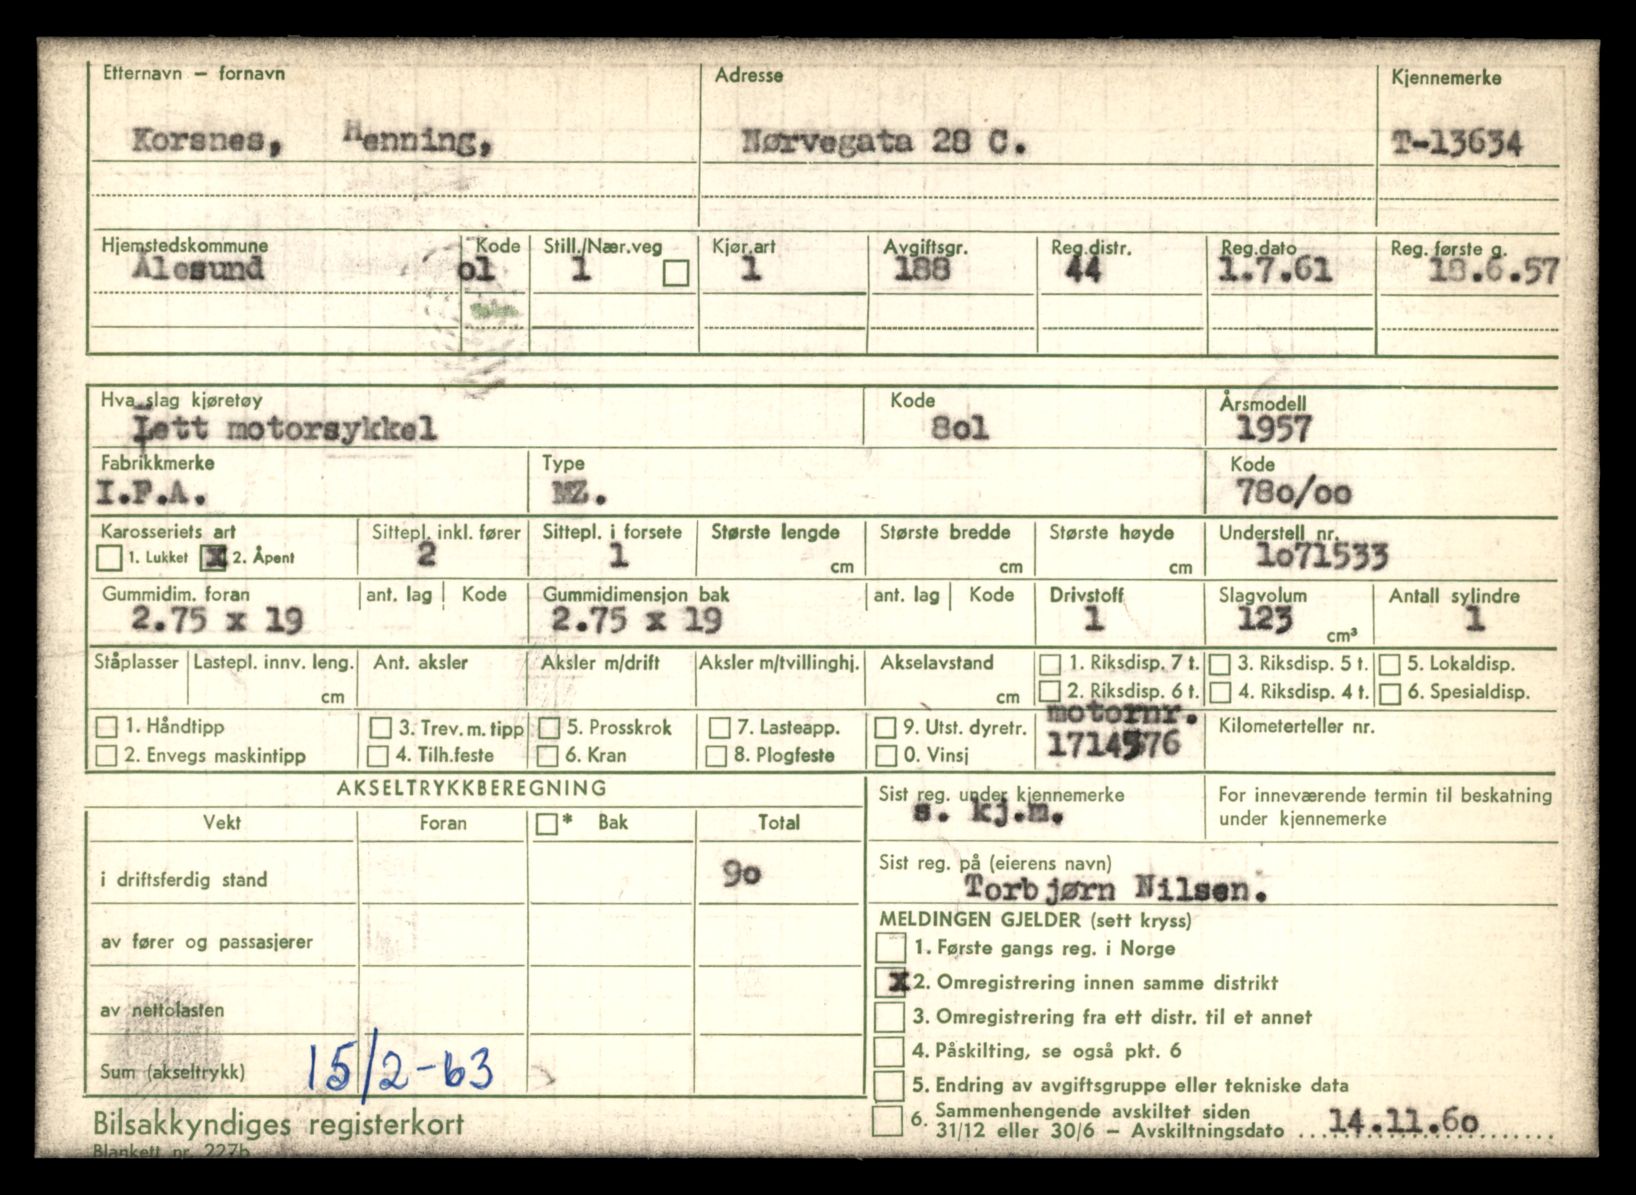 Etternavn – fornavn Adresse Kjennemerke
Korsnes, Henning, Nørvegata 28 C. T-13634
Hjemstedskommune Kode Still./Nær.veg Kjør.art Avgiftsgr. Reg.distr. Reg.dato Reg. første g.
Ålesund o1 1 1 188 44 1.7.61 18.6.57
Hva slag kjøretøy Kode Årsmodell
Lett motorsykkel 8o1 1957
Fabrikkmerke Type Kode
I.F.A. MZ. 78o/oo
Karosseriets art Sittepl. inkl. fører Sittepl. i forsete Største lengde Største bredde Største høyde Understell nr.
1. Lukket x 2. Åpent 2 1 cm cm cm 1o71533
Gummidim. foran ant. lag Kode Gummidimensjon bak ant. lag Kode Drivstoff Slagvolum Antall sylindre
2.75 x 19 2.75 x 19 1 123 cm³ 1
Ståplasser Lastepl. innv. leng. Ant. aksler Aksler m/drift Aksler m/tvillinghj. Akselavstand 1. Riksdisp. 7 t. 3. Riksdisp. 5 t. 5. Lokaldisp.
cm cm 2. Riksdisp. 6 t. 4. Riksdisp. 4 t. 6. Spesialdisp.
motornr.
1. Håndtipp 3. Trev. m. tipp 5. Prosskrok 7. Lasteapp. 9. Utst. dyretr. Kilometerteller nr.
2. Envegs maskintipp 4. Tilh.feste 6. Kran 8. Plogfeste 0. Vinsj 1714576
AKSELTRYKKBEREGNING
Sist reg. under kjennemerke For inneværende termin til beskatning
s. kj.m. under kjennemerke
Vekt Foran * Bak Total
Sist reg. på (eierens navn)
i driftsferdig stand 9o
Torbjørn Nilsen.
MELDINGEN GJELDER (sett kryss)
av fører og passasjerer
1. Første gangs reg. i Norge
x 2. Omregistrering innen samme distrikt
av nettolasten
3. Omregistrering fra ett distr. til et annet
4. Påskilting, se også pkt. 6
Sum (akseltrykk) 15/2-63
5. Endring av avgiftsgruppe eller tekniske data
6. Sammenhengende avskiltet siden
31/12 eller 30/6 – Avskiltningsdato 14.11.6o
Bilsakkyndiges registerkort
Blankett nr. 227b